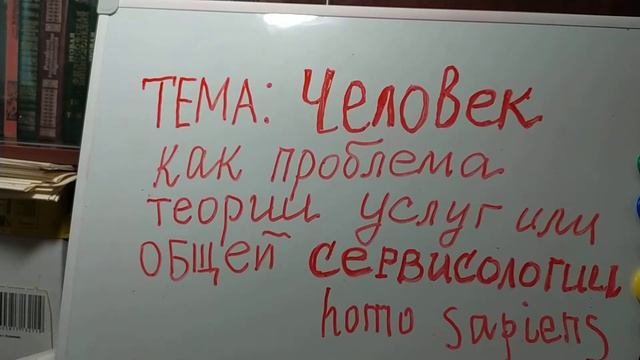 ТЕМА: Человек
как проблема
теории услуг или
общей сервисологии
homo sapiens